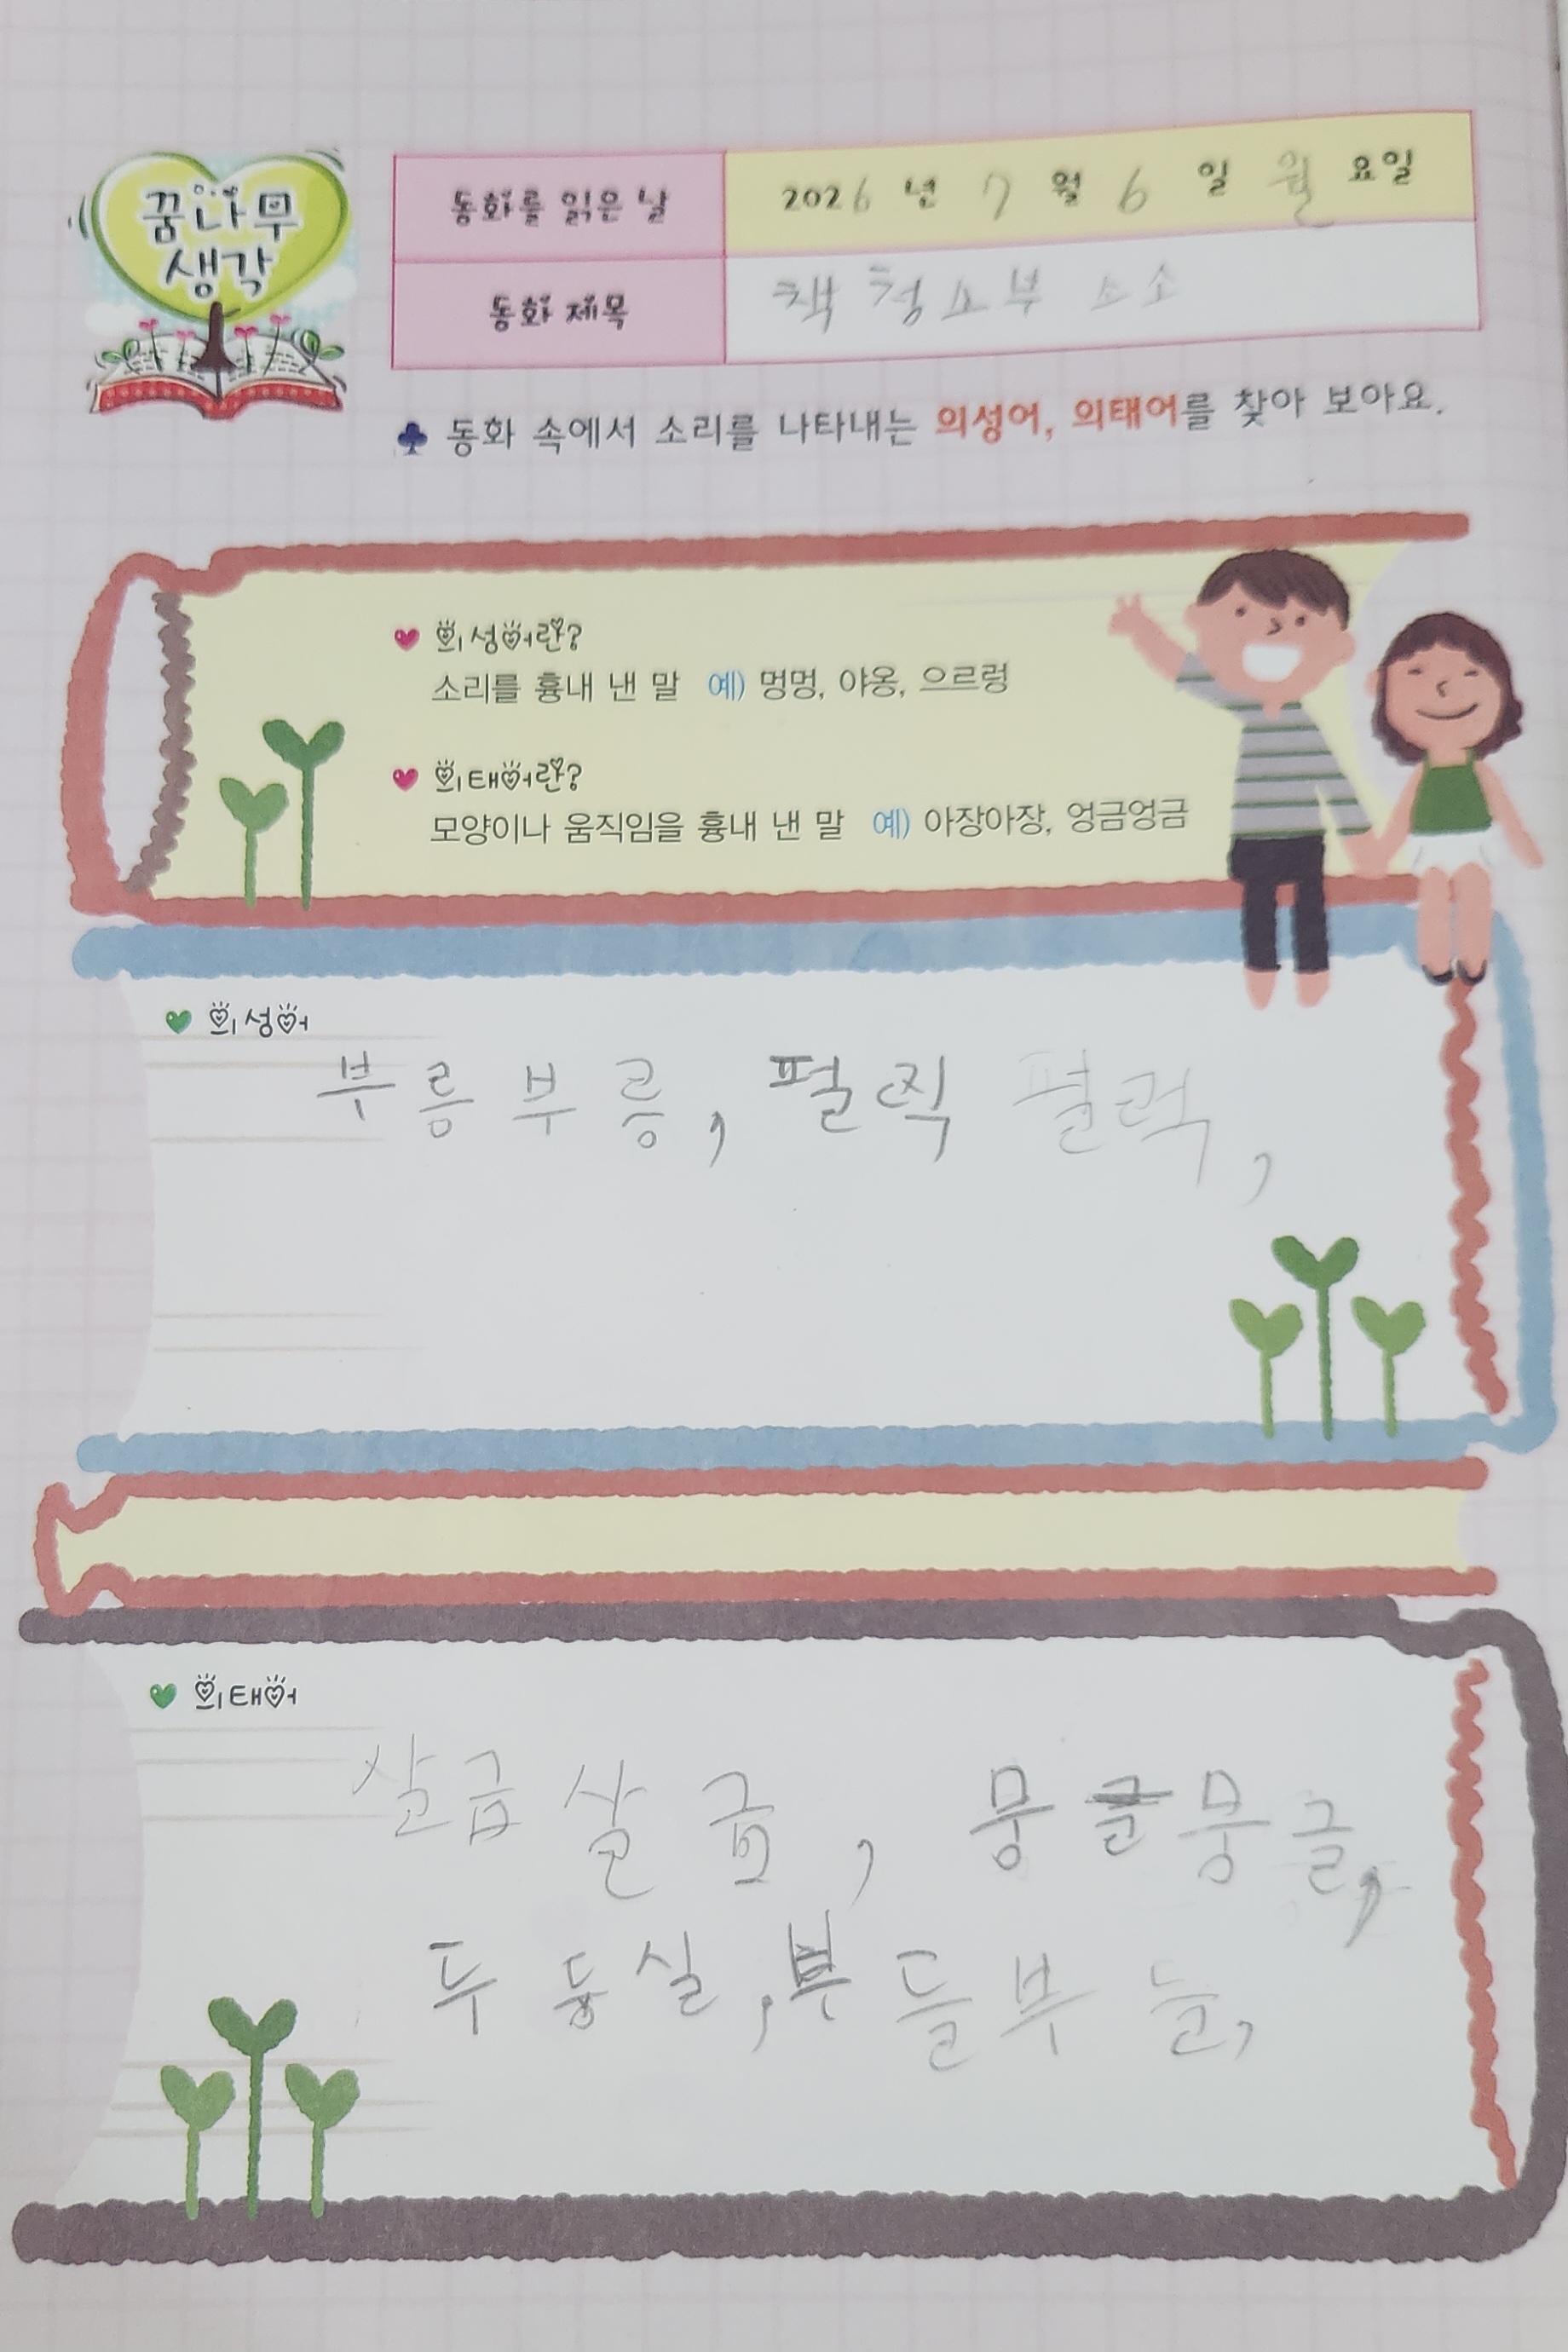 꿈나무
생각
동화를 읽은 날
2026 년 7 월 6 일 월 요일
동화 제목
책 청소부 소소
동화 속에서 소리를 나타내는 의성어, 의태어를 찾아 보아요.
의성어란?
소리를 흉내 낸 말 예) 멍멍, 야옹, 으르렁
의태어란?
모양이나 움직임을 흉내 낸 말 예) 아장아장, 엉금엉금
의성어
부릉부릉, 펄럭 펄럭,
의태어
살금살금, 뭉글뭉글,
두둥실, 부들부늘,